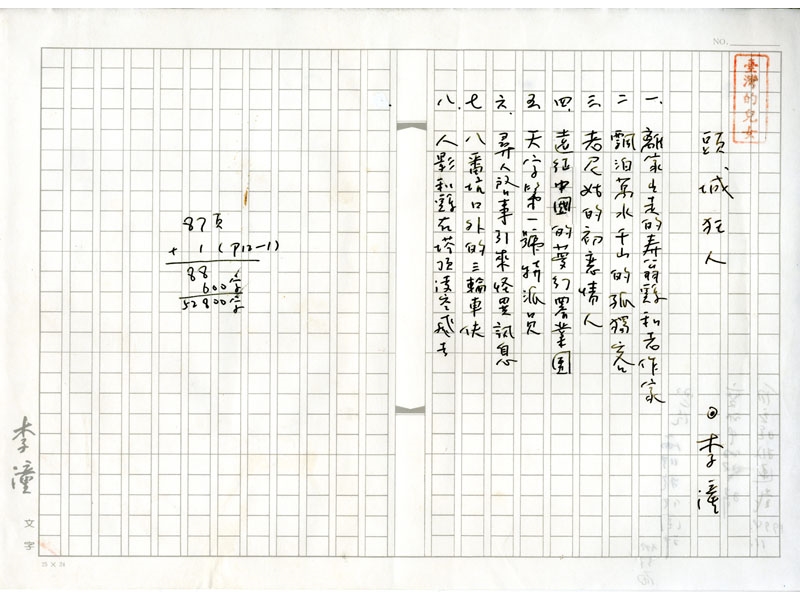 NO.
臺灣的兒女
頭城狂人
◎李潼
一、離家出走的壽翁雞和老作家
二、飄泊萬水千山的孤獨客
三、老尼姑的初戀情人
四、遠征中國的夢幻罌粟園
五、天字第一號特派員
六、尋人故事引來怪異訊息
七、八番坑口外的三輪車伕
八、人影和雞在塔頂凌空飛去
87頁
+ 1 (P12-1)
88
600字
52800字
李潼
文字
25×24